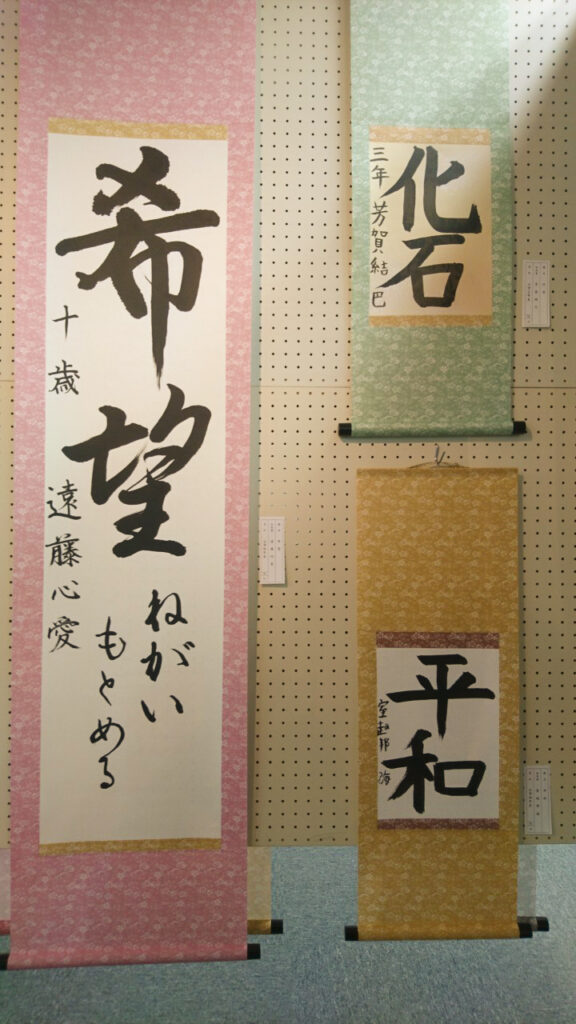 希望
ねがい
もとめる
十歳 遠藤心愛
化石
三年 芳賀結巴
平和